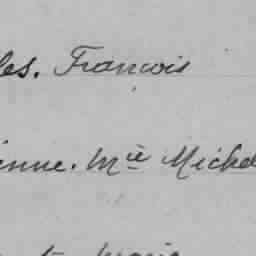 les. François
enne. Mie Michel